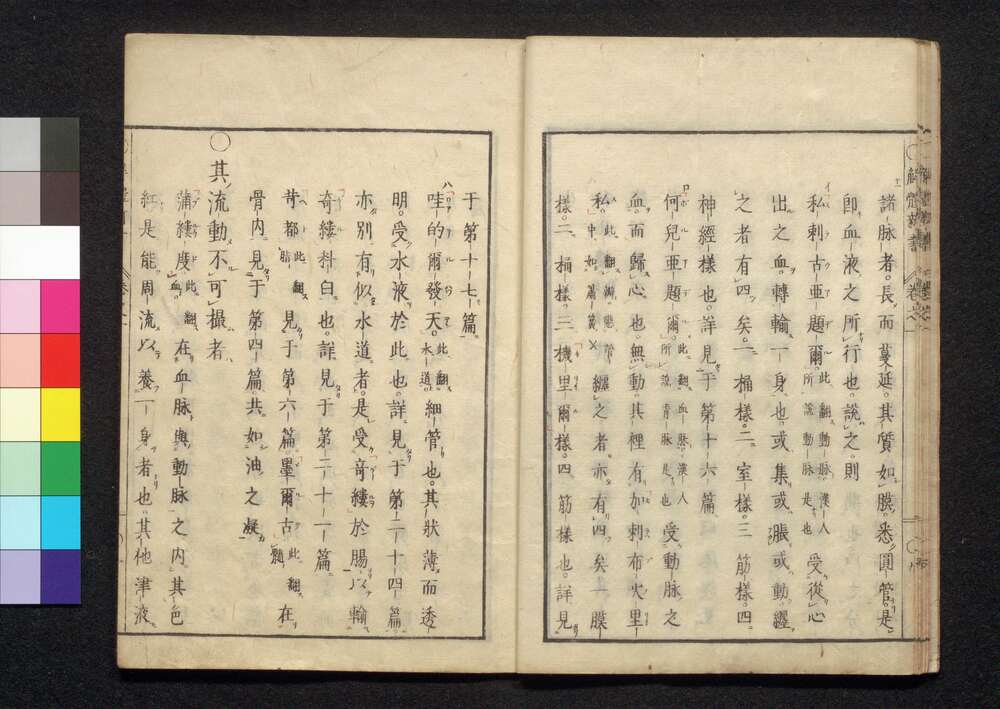 諸脉者。長而蔓延。其質如膜。悉圓管。是
即血液之所行也。説之則
私剌古亜題爾。此翻動脉。漢人所説動脉是也受從心
出之血。轉輸一身也。或集。或脹。或動。纒
之者有四矣。一桶樣。二室樣。三筋樣。四
神經樣也。詳見于第十六篇。
何兒亜題爾。此翻血脉。漢人所説青脉是也受動脉之
血。而歸心也。無動。其裡有加剌布火里
私。纒之者。亦有四矣。一膜
樣。二桶樣。三機里爾樣。四筋樣也。詳見
于第十七篇。
哇的爾發天。此翻水道。細管也。其状薄而透
明。受水液。於此也。詳見于第二十四篇。
亦別有似水道者。是受奇縷於腸。輸
奇縷科臼也。詳見于第二十一篇。
苛都此翻脂見于第六篇。墨爾古此翻髓在
骨内。見于第四篇。共如油之凝。
○其流動不可撮者。
蒲縷度。此翻血。在血脉與動脉之内。其色
紅。是能周流。養一身者也。其他津液